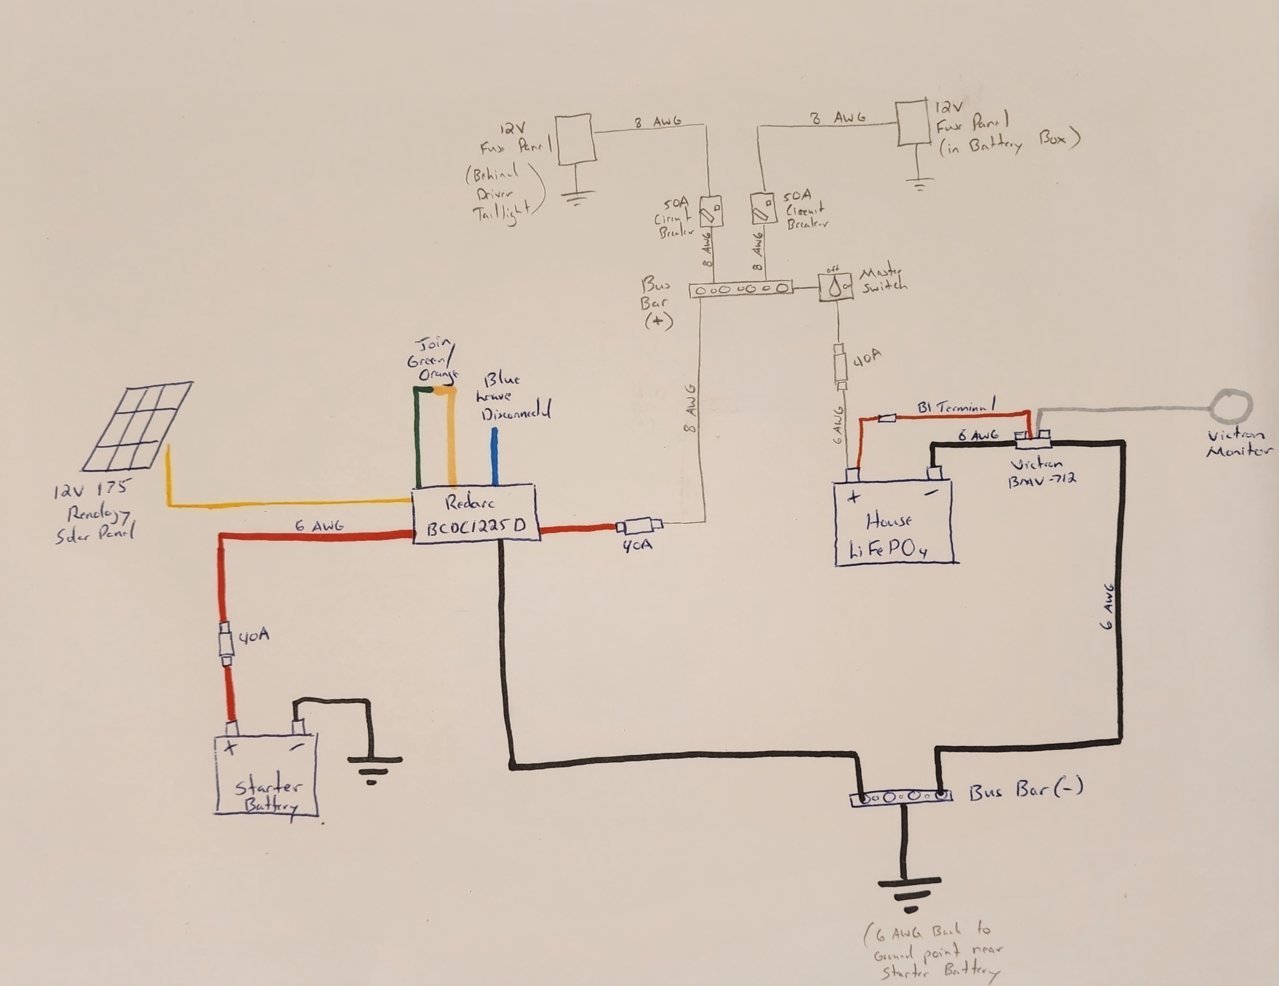 12V
Fuse Panel
(Behind
Driver
Taillight)
8 AWG
8 AWG
12V
Fuse Panel
(in Battery Box)
50A
Circuit
Breaker
50A
Circuit
Breaker
8 AWG
8 AWG
Bus
Bar
(+)
off
Master
Switch
40A
8 AWG
6 AWG
Join
Green/
Orange
Blue
Leave
Disconnected
B1 Terminal
6 AWG
Victron
BMV-712
Victron
Monitor
12V 175
Renology
Solar Panel
6 AWG
Redarc
BCDC1225D
40A
+ -
House
LiFePO4
40A
6 AWG
+ -
Starter
Battery
Bus Bar (-)
(6 AWG Back to
Ground point near
Starter Battery